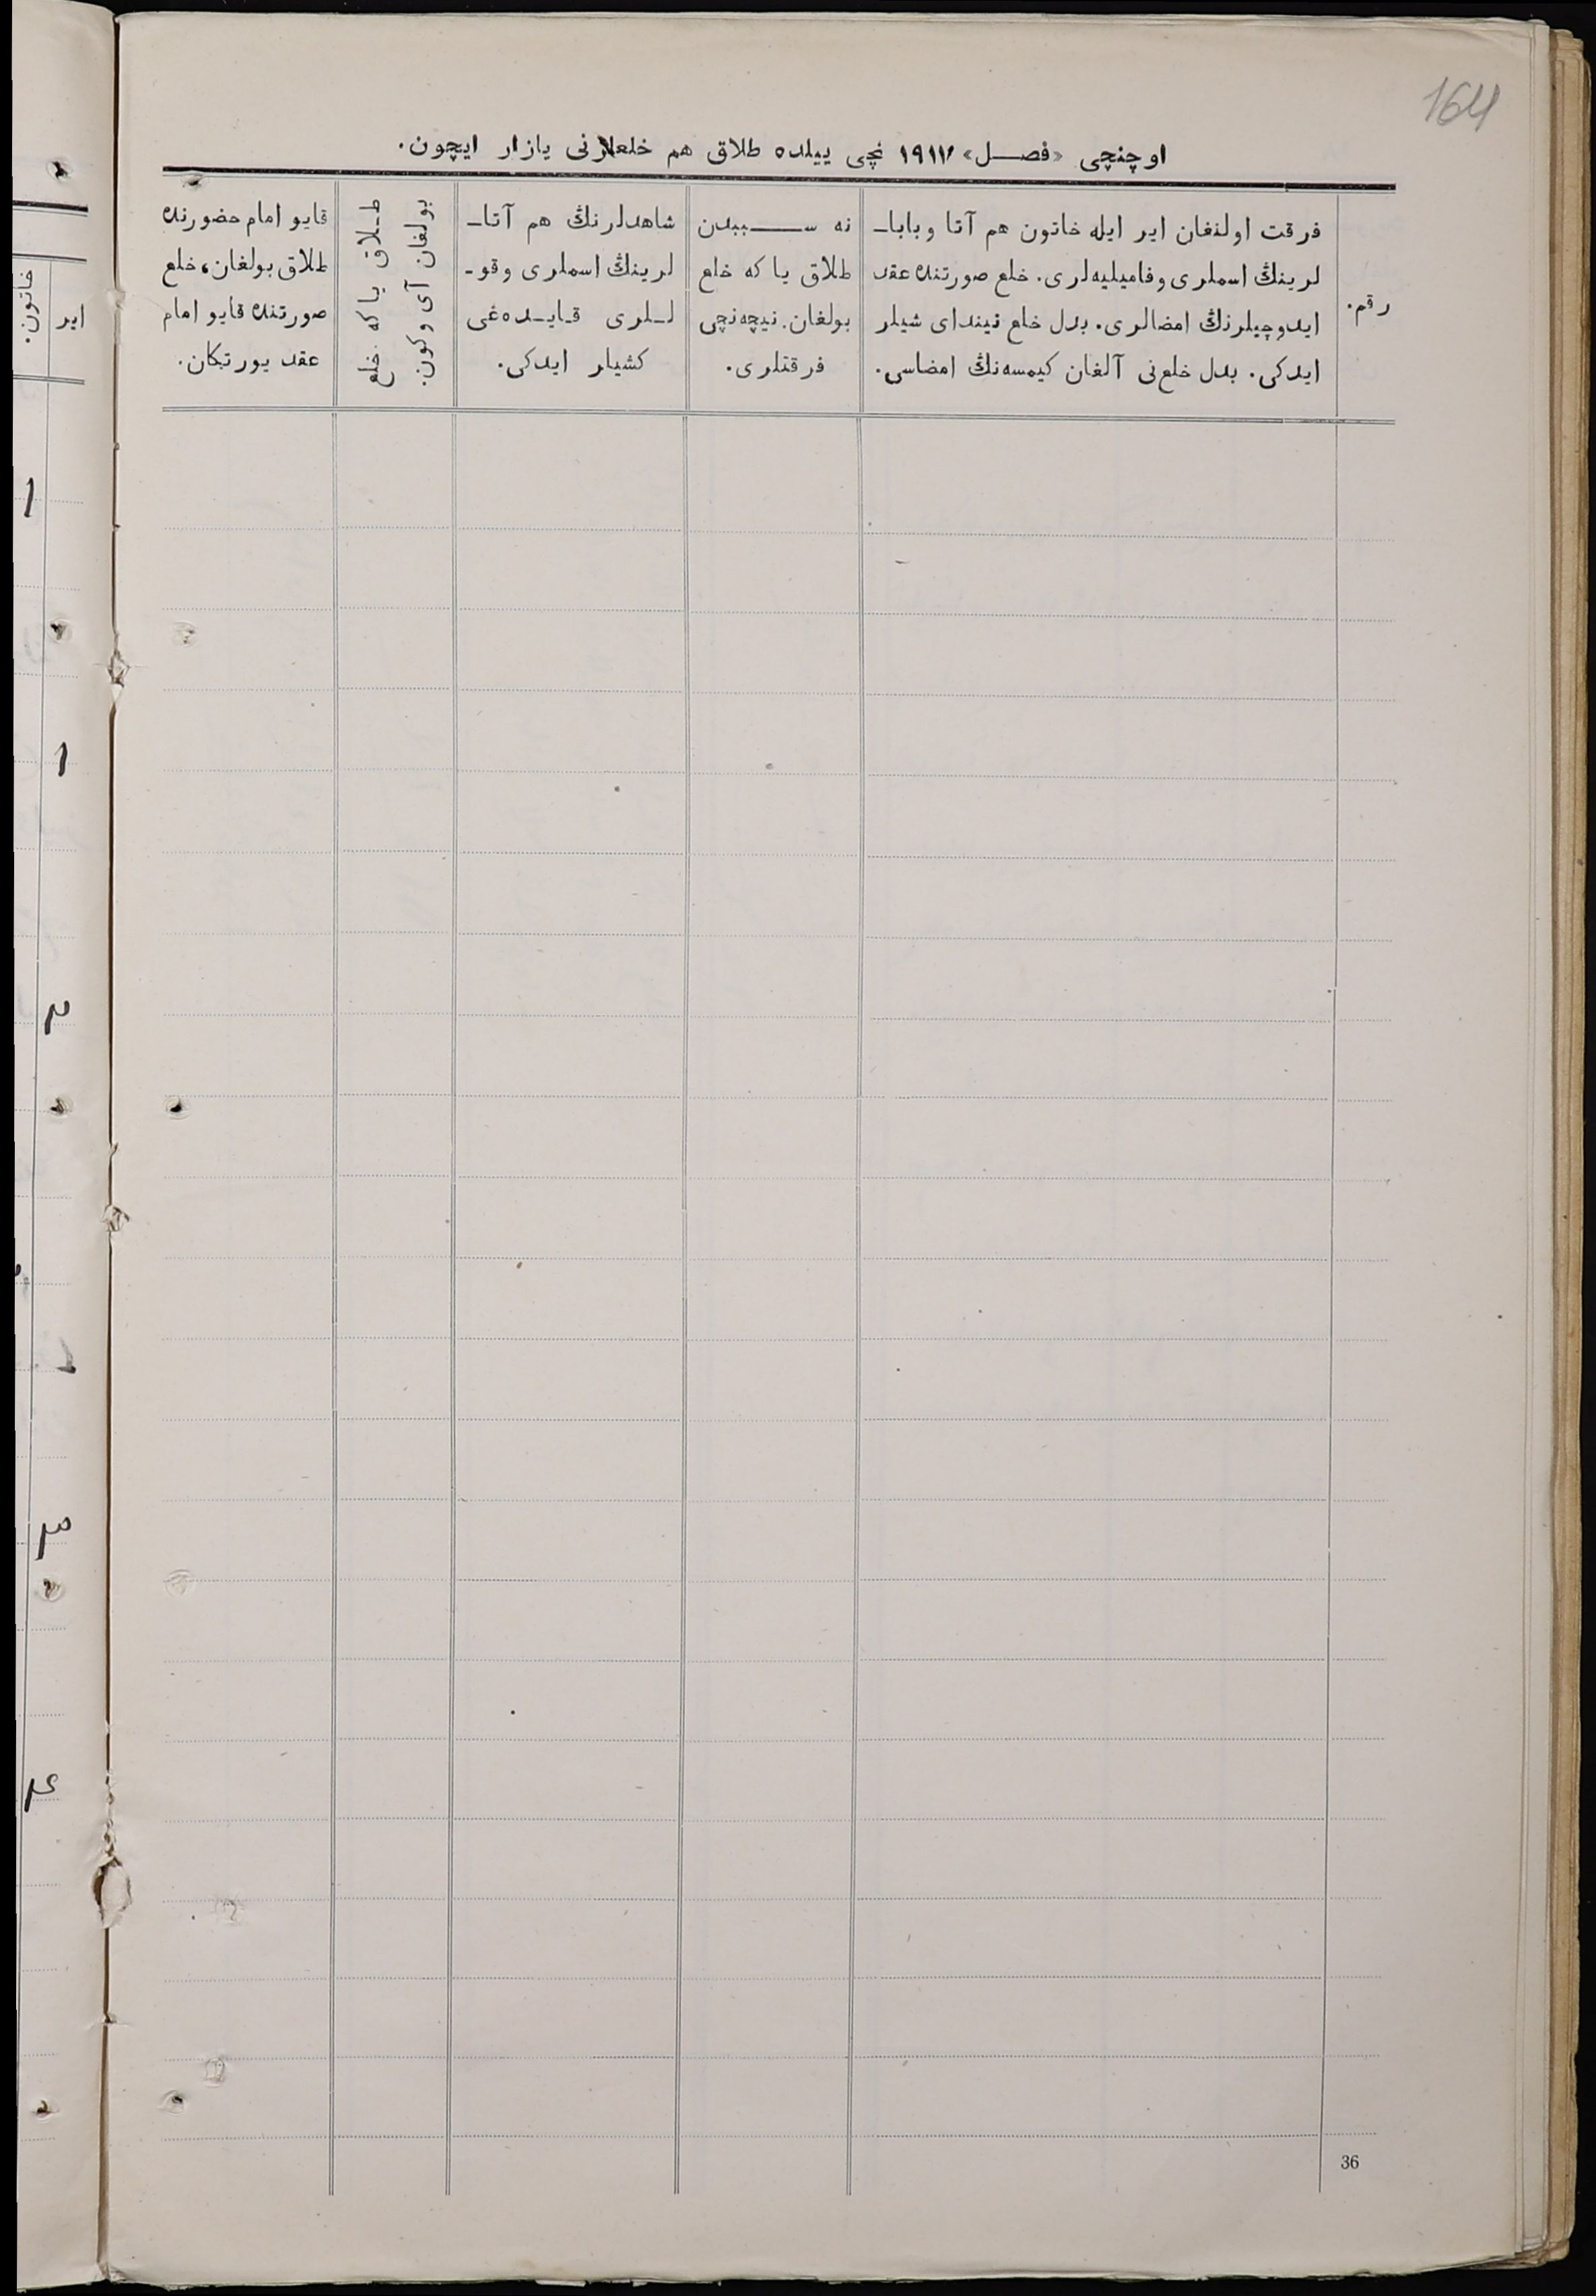 164
اوچنچی «فصل» ١٩١٧ نچی ییلده طلاق هم خلعلارنی یازار ایچون.
رقم.
فرقت اولنغان ایر ایله خاتون هم آتا وبابا-
لرینڭ اسملری وفامیلیه‌لری. خلع صورتنده عقد
ایدوچیلرنڭ امضالری. بدل خلع نیندای شیلر
ایدکی. بدل خلع‌نی آلغان کیمسه‌نڭ امضاسی.
نه سببدن
طلاق یا که خلع
بولغان. نیچه‌نچی
فرقتلری.
شاهدلرنڭ هم آتا-
لرینڭ اسملری وقو-
لـلری قـایـده‌غی
کشیلر ایدکی.
طـلاق یا که خلع
بولغان آی وکون.
قایو امام حضورنده
طلاق بولغان، خلع
صورتنده قایو امام
عقد یورتکان.
36
ایر
خاتون.
١
١
٢
٣
٤